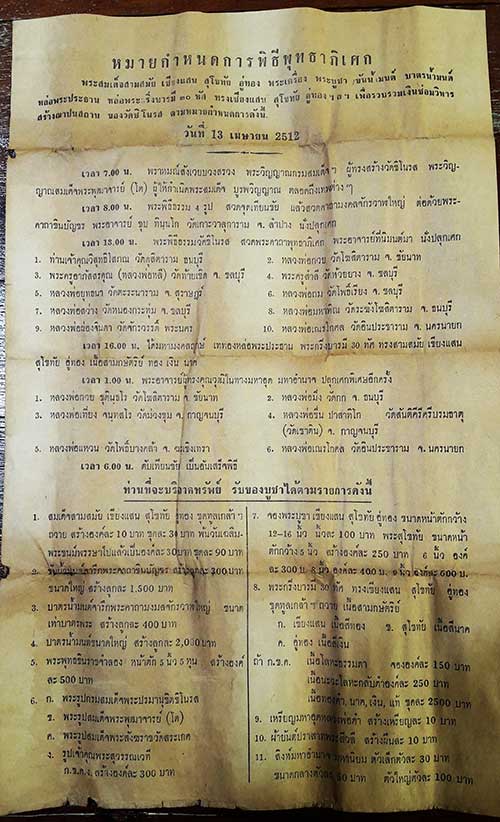 หมายกำหนดการพิธีพุทธาภิเศก
พระสมเด็จสามสมัย เชียงแสน สุโขทัย อู่ทอง พระเครื่อง พระบูชา ขันน้ำมนต์ บาตรน้ำมนต์
หล่อพระประธาน หล่อพระกริ่งบารมี ๓๐ ทัศ ทรงเชียงแสน สุโขทัย อู่ทอง ฯลฯ เพื่อรวบรวมเงินซ่อมวิหาร
สร้างฌาปนสถาน ของวัดชิโนรส ตามหมายกำหนดการดังนี้.
วันที่ 13 เมษายน 2512
เวลา 7.00 น. พราหมณ์สังเวยบวงสรวง พระวิญญาณกรมสมเด็จฯ ผู้ทรงสร้างวัดชิโนรส พระวิญ-
ญาณสมเด็จพระพุฒาจารย์ (โต) ผู้ให้กำเนิดพระสมเด็จ บูรพวิญญาณ ตลอดถึงเทพต่างๆ
เวลา 8.00 น. พระพิธีธรรม 4 รูป สวดจุดเทียนชัย แล้วสวดคาถามงคลจักรวาฬใหญ่ ต่อด้วยพระ-
คาถาชินบัญชร พระอาจารย์ ชุบ ทินฺนโก วัดเกาะวาลุการาม จ. ลำปาง นั่งปลุกเศก
เวลา 13.00 น. พระพิธีธรรมวัดชิโนรส สวดพระคาถาพุทธาภิเศก พระอาจารย์ที่นิมนต์มา นั่งปลุกเศก
1. ท่านเจ้าคุณวิสุทธิโสภณ วัดดุสิตาราม ธนบุรี
2. หลวงพ่อกวย วัดโฆสิตาราม จ. ชัยนาท
3. พระครูอาภัสสรคุณ (หลวงพ่อหลี) วัดท้ายเซิด จ. ชลบุรี
4. พระครูสำลี วัดห้วยยาง จ. ชลบุรี
5. หลวงพ่อยุทธนา วัดตะระนาราม จ. สุราษฎร์
6. หลวงพ่อถม วัดโพธิ์เรียง จ. ชลบุรี
7. หลวงพ่อสว่าง วัดหนองกระทุ่ม จ. ชลบุรี
8. หลวงพ่อมหาถัณ วัดระฆังโฆสิตาราม จ. ธนบุรี
9. หลวงพ่อฉ้องจินดา วัดจักรวรรดิ์ พระนคร
10. หลวงพ่อเณรโกคล วัดอินประชาราม จ. นครนายก
เวลา 16.00 น. ได้มหามงคลฤกษ์ เททองหล่อพระประธาน พระกริ่งบารมี 30 ทัศ ทรงสามสมัย เชียงแสน
สุโขทัย อู่ทอง เนื้อสามกษัตริย์ ทอง เงิน นาค
เวลา 1.00 น. พระอาจารย์ผู้ทรงคุณวุฒิในทางมหาอุด มหาอำนาจ ปลุกเศกพิเศษอีกครั้ง
1. หลวงพ่อกวย ชุตินฺธโร วัดโฆสิตาราม จ. ชัยนาท
2. หลวงพ่อมิ่ง วัดกก จ. ธนบุรี
3. หลวงพ่อเที่ยง จนฺทสโร วัดม่วงชุม จ. กาญจนบุรี
4. หลวงพ่อชื่น ปาสาทิโก วัดสันติคีรีศรีบรมธาตุ
(วัดเขาดิน) จ. กาญจนบุรี
5. หลวงพ่อแหวน วัดโพธิ์บางคล้า จ. ฉะเชิงเทรา
6. หลวงพ่อเณรโกคล วัดอินประชาราม จ. นครนายก
เวลา 6.00 น. ดับเทียนชัย เป็นอันเสร็จพิธี
ท่านที่จะบริจาคทรัพย์ รับของบูชาได้ตามรายการดังนี้
1. สมเด็จสามสมัย เชียงแสน สุโขทัย อู่ทอง ชุดทูลเกล้าฯ
ถวาย สร้างองค์ละ 10 บาท ชุดละ 30 บาท พ้นวันเฉลิม-
พระชนม์พรรษาไปแล้วเป็นองค์ละ 30 บาท ชุดละ 90 บาท
2. ขันน้ำมนต์จารึกพระคาถาชินบัญชร สร้างลูกละ 300 บาท
ขนาดใหญ่ สร้างลูกละ 1.500 บาท
3. บาตรน้ำมนต์จารึกพระคาถามงคลจักรวาฬใหญ่ ขนาด
เท่าบาตรพระ สร้างลูกละ 400 บาท
4. บาตรน้ำมนต์ขนาดใหญ่ สร้างลูกละ 2,000 บาท
5. พระพุทธชินราชจำลอง หน้าตัก 5 นิ้ว 5 หุน สร้างองค์
ละ 500 บาท
6. ก. พระรูปกรมสมเด็จพระปรมานุชิตชิโนรส
ข. พระรูปสมเด็จพระพุฒาจารย์ (โต)
ค. พระรูปสมเด็จพระสังฆราชวัดสระเกศ
ง. รูปเจ้าคุณพระสุวรรณเวที
ก.ข.ค.ง. สร้างองค์ละ 300 บาท
7. จองพระบูชา เชียงแสน สุโขทัย อู่ทอง ขนาดหน้าตักกว้าง
12–16 นิ้ว นิ้วละ 100 บาท พระสุโขทัย ขนาดหน้า
ตักกว้าง 5 นิ้ว สร้างองค์ละ 250 บาท 6 นิ้ว องค์
ละ 300 บ. 8 นิ้ว องค์ละ 400 บ. 9 นิ้ว องค์ละ 600 บ.
8. พระกริ่งบารมี 30 ทัศ ทรงเชียงแสน สุโขทัย อู่ทอง
ชุดทูลเกล้าฯ ถวาย เนื้อสามกษัตริย์
ก. เชียงแสน เนื้อสีทอง ข. สุโขทัย เนื้อสีนาค
ค. อู่ทอง เนื้อสีเงิน
ถ้า ก.ข.ค. เนื้อโลหะธรรมดา จององค์ละ 150 บาท
เนื้อนวะโลหะกลับดำองค์ละ 250 บาท
เนื้อทองคำ, นาค, เงิน, แท้ ชุดละ 2500 บาท
9. เหรียญมหาอุดหลวงพ่อดำ สร้างเหรียญละ 10 บาท
10. ผ้ายันต์ปราสาทพระสีวลี สร้างผืนละ 10 บาท
11. สิงห์มหาอำนาจ มหานิยม ตัวเล็กตัวละ 30 บาท
ขนาดกลางตัวละ 50 บาท ตัวใหญ่ตัวละ 100 บาท